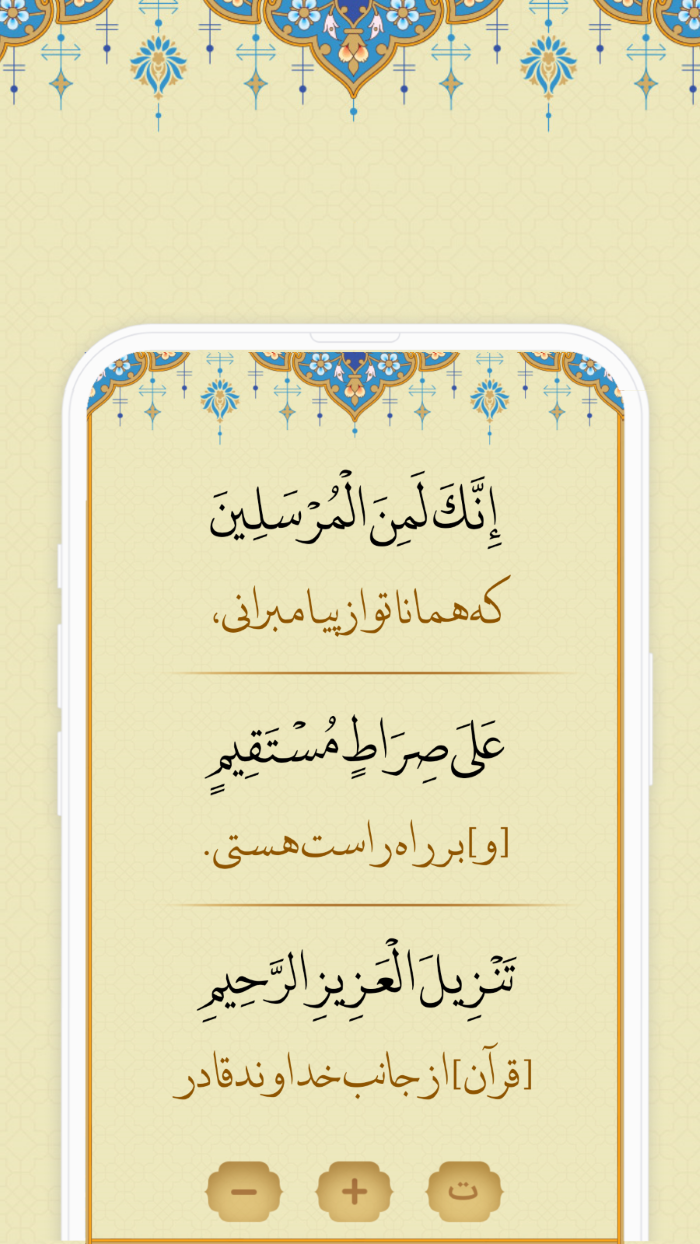 إِنَّكَ لَمِنَ الْمُرْسَلِينَ
که همانا تو از پیامبرانی،
عَلَىٰ صِرَاطٍ مُسْتَقِيمٍ
[و] بر راه راست هستی.
تَنْزِيلَ الْعَزِيزِ الرَّحِيمِ
[قرآن] از جانب خداوند قادر
− + ت